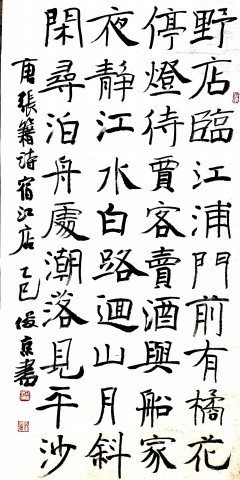 野店臨江浦門前有橘花
停燈待賈客賣酒與船家
夜靜江水白路迴山月斜
閑尋泊舟處潮落見平沙
唐張籍詩宿江店乙巳俊京書